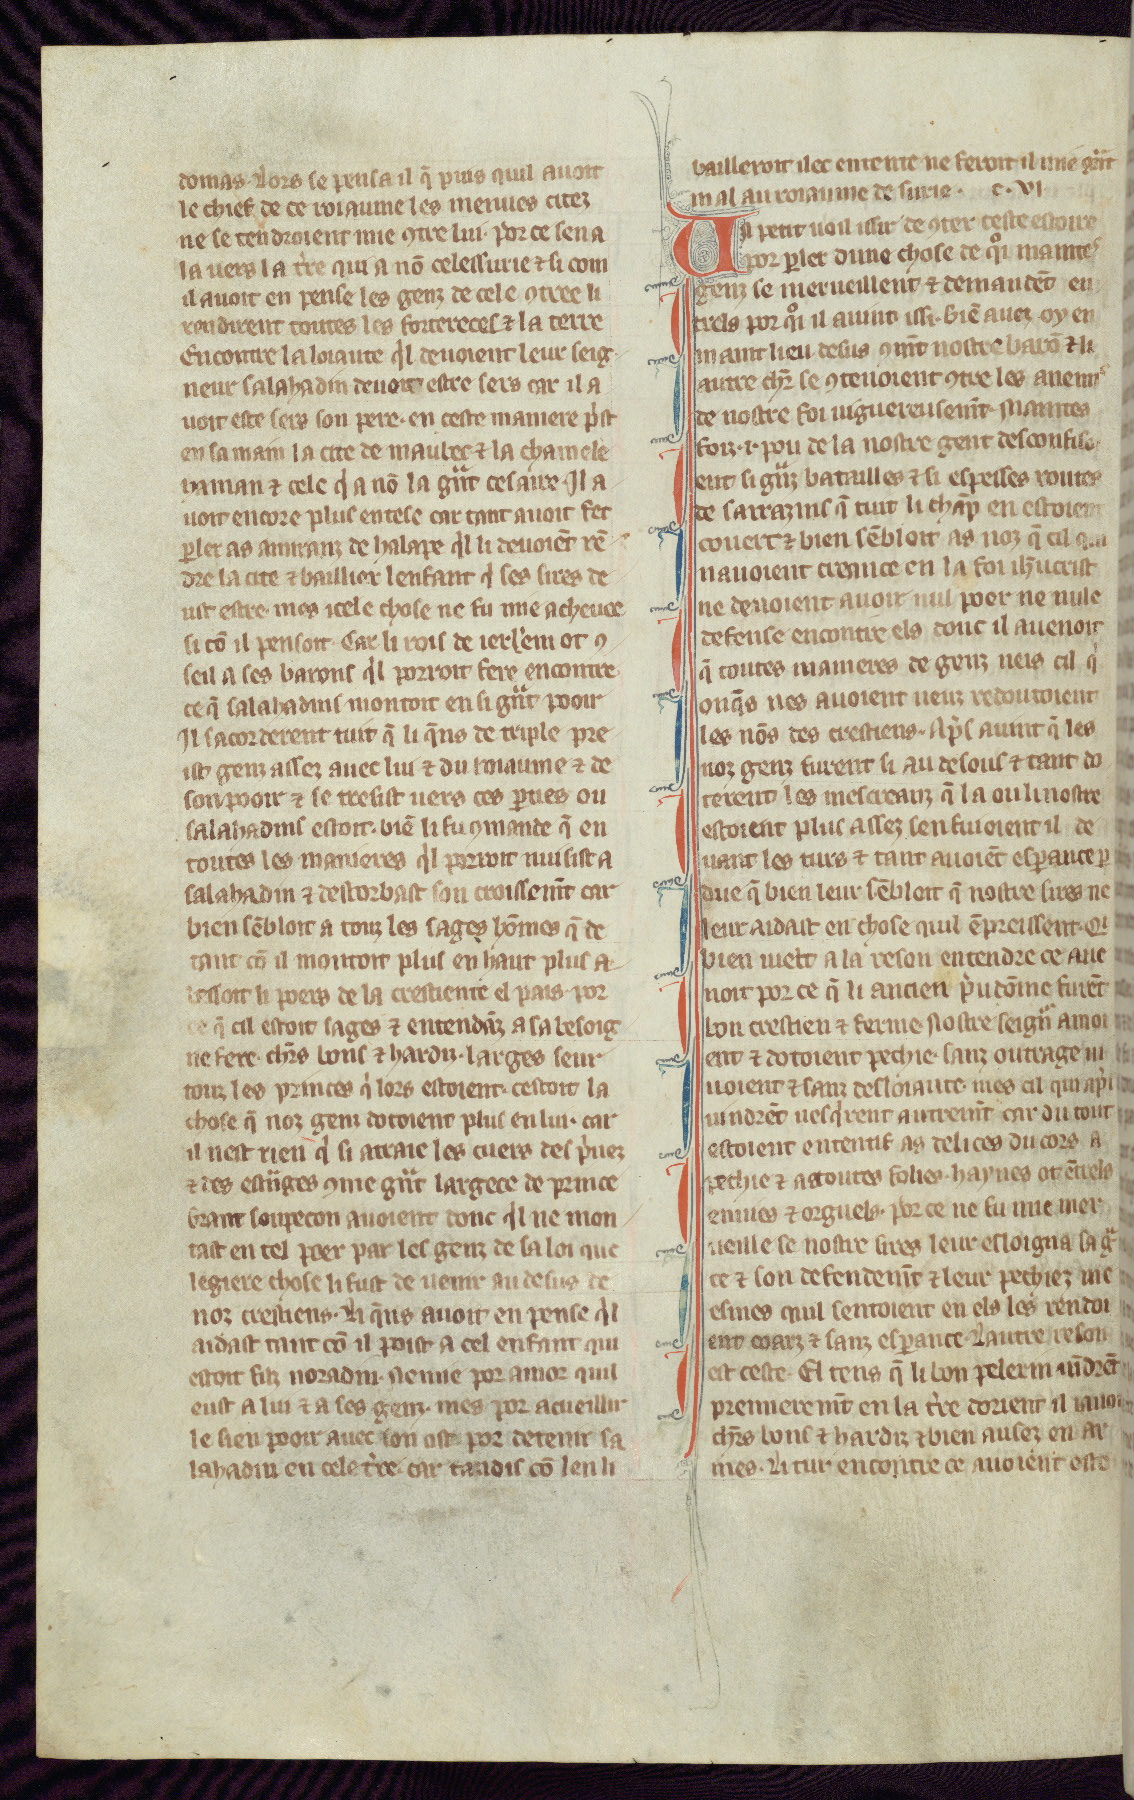 domas. Lors se pensa il q̄ puis quil auoit
le chief de ce roiaume les menues citez
ne se tendroient mie ꝯtre lui. por ce sen a
la uers la t̓re qui a nō celessurie ⁊ si com
il auoit en pense les genz de cele ꝯtree li
rendirent toutes les fortereces ⁊ la terre
Encontre la loiaute q̓l deuoient leur seig
neur salahadin deuoit estre sers car il a
uoit este sers son pere. en ceste maniere p̓st
en sa main la cite de maubec ⁊ la chamele
haman ⁊ cele q̓ a nō la g̃nt cesaire. Il a
uoit encore plus entese car tant auoit fet
ꝑler as amiranz de halape q̓l li deuoiēt rē
dre la cite ⁊ baillier lenfant q̓ ses sires de
uit estre. mes icele chose ne fu mie acheuee
si cō il pensoit. Car li rois de ierl̓em ot ꝯ
seil a ses barons q̓l porroit fere encontre
ce q̄ salahadins montoit en si g̃nt pooir
Il sacorderent tuit q̄ li q̄ns de triple pre
ist genz assez auec lui ⁊ du roiaume ⁊ de
son pooir ⁊ se tresist uers ces ꝑties ou
salahadins estoit. biē li fu ꝯmande q̄ en
toutes les manieres q̓l porroit nuisist a
salahadin ⁊ destorbast son croissem̄t car
bien sēbloit a touz les sages hōmes q̄ de
tant cō il montoit plus en haut plus a
bessoit li poers de la crestiente el pais. por
ce q̄ cil estoit sages ⁊ entendāz a sa besoig
ne fere. ch̓rs bons ⁊ hardiz. larges seur
touz les princes q̓ lors estoient. cestoit la
chose q̄ noz genz dotoient plus en lui. car
il nest rien q̓ si atraie les cuers des p̓uez
⁊ des est̃nges ꝯme g̃nt largece de prince
Grant soupecon auoient donc q̓l ne mon
tast en tel poer par les genz de sa loi que
legiere chose li fust de uenir au desus de
noz crestiens. Li q̄ns auoit en pense q̓l
aidast tant cō il poist a cel enfant qui
estoit filz noradin. Ne mie por amor quil
eust a lui ⁊ a ses genz. mes por acueillir
le sien pooir auec son ost por detenir sa
lahadin en cele t̓re. car tandis cō len li
bailleroit ilec entente ne feroit il une g̃nt
mal au roiaume de surie. c. VI
Un petit uoil issir de ꝯter ceste estoire
por ꝑler dune chose de q̓oi maintes
genz se merueillent ⁊ demandēt en
trels por q̓oi il auint issi. Biē auez oy en
maint lieu desus ꝯmt nostre barō ⁊ li
autre ch̓r se ꝯtenoient ꝯtre les anemis
de nostre foi uiguereusem̄t. Maintes
foiz .i. pou de la nostre gent desconfiso
ent si g̃nz batailles ⁊ si espesses routes
de sarrazins q̄ tuit li chāp en estoient
couert ⁊ bien sēbloit as noz q̄ cil qui
nauoient creance en la foi ih̓ucrist
ne deuoient auoir nul poer ne nule
defense encontre els donc il auenoit
q̄ toutes manieres de genz neis cil q̓
onq̄s nes auoient ueuz redoutoient
les nōs des crestiens. Ap̓s auint q̄ les
noz genz furent si au desouz ⁊ tant do
terent les mescreanz q̄ la ou li nostre
estoient plus assez senfuioient il de
uant les turs ⁊ tant auoiēt esꝑance ꝑ
due q̄ bien leur sēbloit q̄ nostre sires ne
leur aidast en chose quil ēpreissent. Q̓
bien uielt a la reson entendre ce aue
noit por ce q̄ li ancien p̓udōme furēt
bon crestien ⁊ ferme Nostre seign̄r amoi
ent ⁊ dotoient pechie. sanz outrage ui
uoient ⁊ sanz desloiaute. mes cil qui ap̓s
uindrēt uesq̓rent autrem̄t car du tout
estoient ententif as delices du cors a
pechie ⁊ a toutes folies. haynes ot ētrels
enuies ⁊ orguels. por ce ne fu mie mer
ueille se nostre sires leur esloigna sa g̃
ce ⁊ son defendem̄t ⁊ leur pechiez me
esmes quil sentoient en els les rendoi
ent coarz ⁊ sanz esꝑance. Lautre reson
est ceste. El tens q̄ li bon pelerin uindrēt
premierem̄t en la t̓re dorient il iauoi
ch̓rs bons ⁊ hardiz ⁊ bien ausez en ar
mes. Li tur encontre ce auoient este